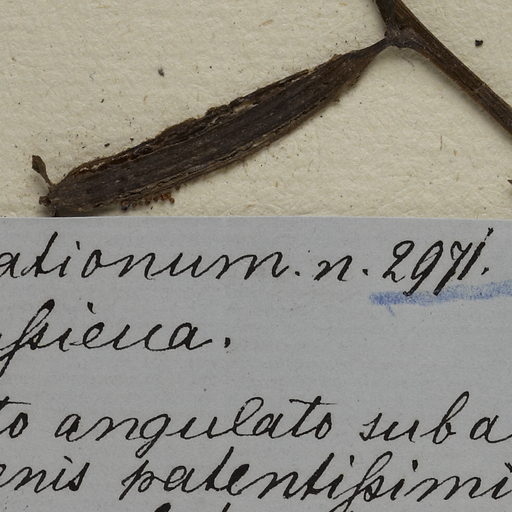 ationum. n. 2971.
ſsieua.
to angulato suba
enis patentiſsimi